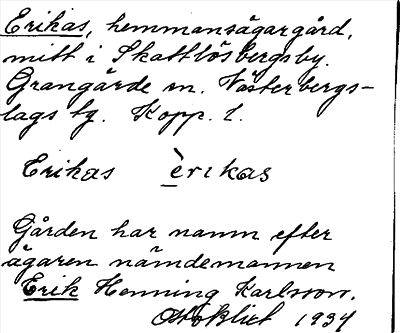 Erikas, hemmansägargård,
mitt i Skattlösbergsby.
Grangärde sn. Västerbergs-
lags tg. Kopp. l.
Erikas èrıkas
Gården har namn efter
ägaren nämdemannen
Erik Henning Karlsson.
1934